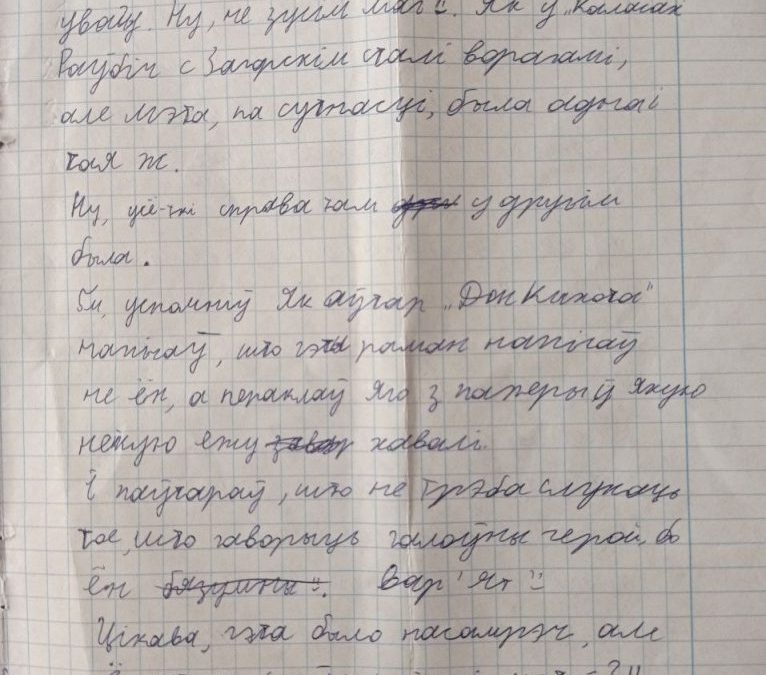 увагу. Ну, не зусім магс. Як у "Каласах
Раўбіч с Загорскім сталі ворагамі,
але мэта, па сутнасці, была адной і
тая ж.
Ну, усё-ткі справа там у другім
была.
успомніў як аўтар "Дон Кихота"
напісаў, што гэты раман напісаў
не ён, а пераклаў яго з паперы ў якую
нейкую ежу хавалі.
І паўтараў, што не трэба слухаць
тое, што гаворыць галоўны герой, бо
ён бязумны". Вар'ят"
Цікава, гэта было насамрэч, але